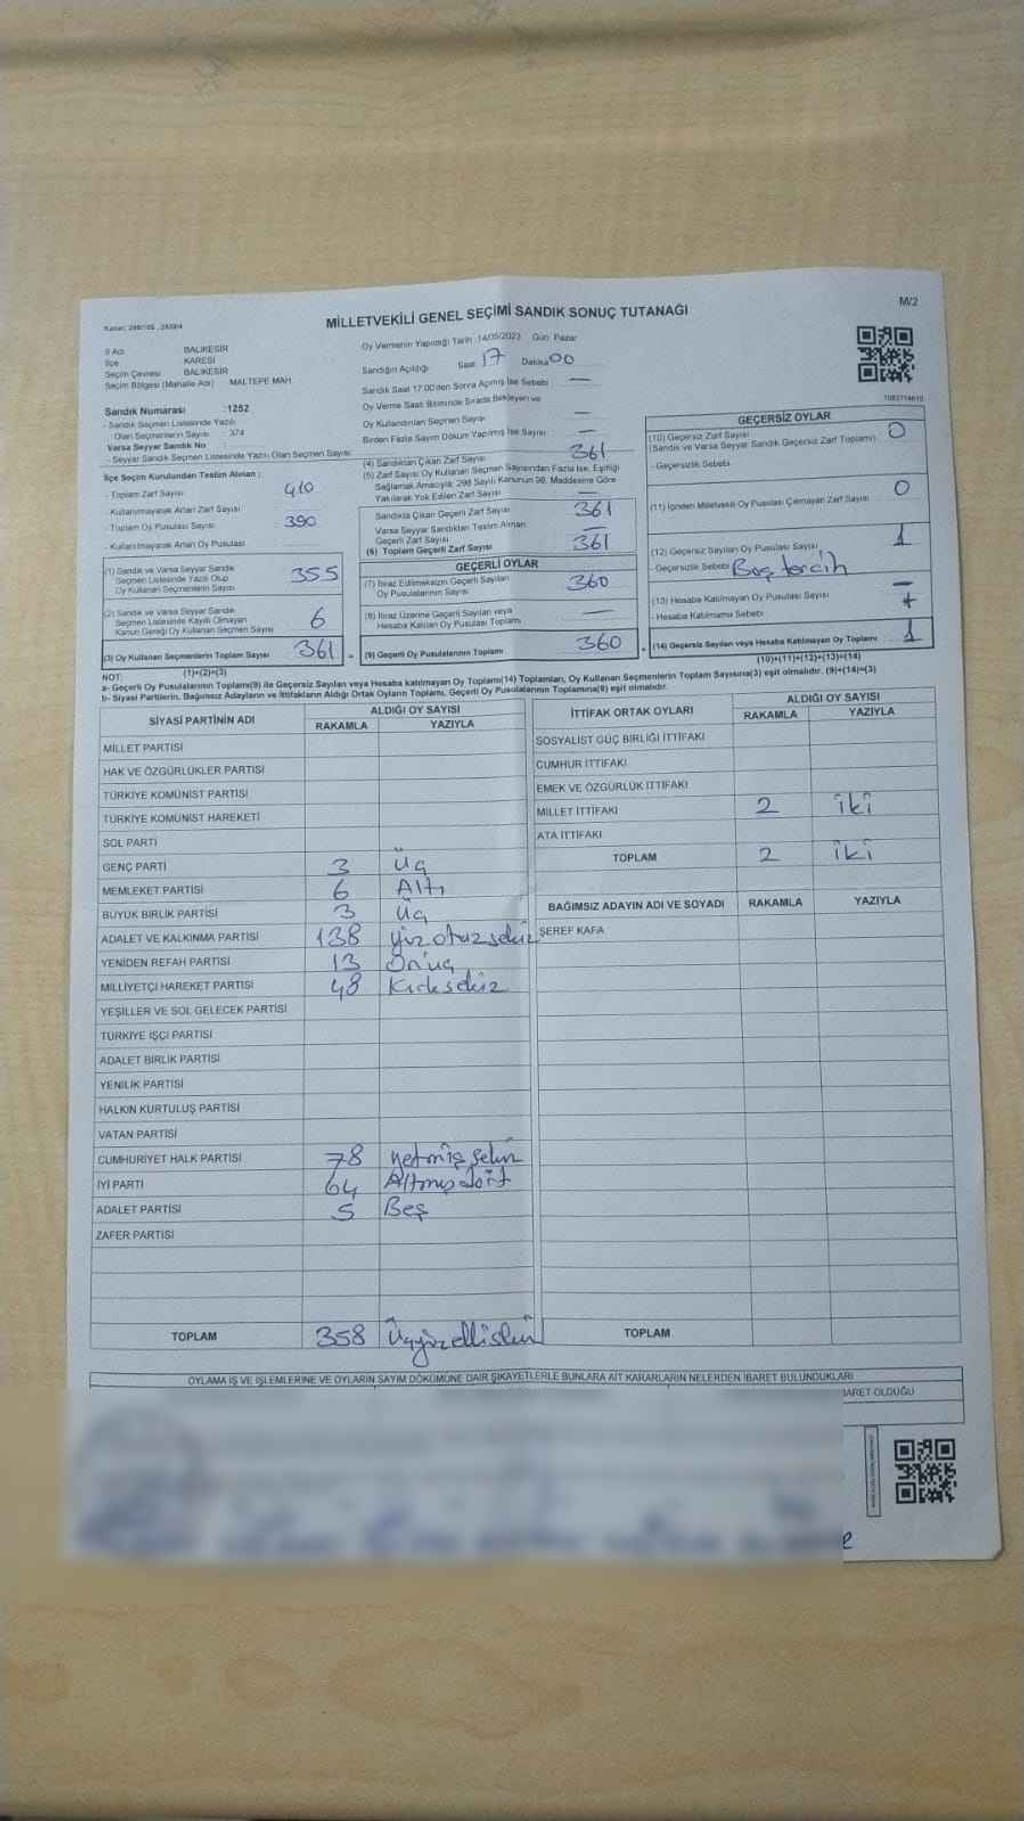 M/2
MİLLETVEKİLİ GENEL SEÇİMİ SANDIK SONUÇ TUTANAĞI
İl Adı BALIKESİR
İlçe KARESİ
Seçim Çevresi BALIKESİR
Seçim Bölgesi (Mahalle Adı) MALTEPE MAH.
Sandık Numarası :1252
- Sandık Seçmen Listesinde Yazılı
Olan Seçmenlerin Sayısı : 374
Varsa Seyyar Sandık No
- Seyyar Sandık Seçmen Listesinde Yazılı Olan Seçmen Sayısı
İlçe Seçim Kurulundan Teslim Alınan :
- Toplam Zarf Sayısı 410
- Kullanılmayarak Artan Zarf Sayısı
- Toplam Oy Pusulası Sayısı 390
- Kullanılmayarak Artan Oy Pusulası
(1) Sandık ve Varsa Seyyar Sandık
Seçmen Listesinde Yazılı Olup
Oy Kullanan Seçmenlerin Sayısı 355
(2) Sandık ve Varsa Seyyar Sandık
Seçmen Listesinde Kayıtlı Olmayan
Kanun Gereği Oy Kullanan Seçmen Sayısı 6
(3) Oy Kullanan Seçmenlerin Toplam Sayısı 361 =
(1)+(2)=(3)
Oy Vermenin Yapıldığı Tarih :14/05/2023 Gün: Pazar
Sandığın Açıldığı Saat 17 Dakika 00
Sandık Saat 17.00'den Sonra Açılmış İse Sebebi —
Oy Verme Saati Bitiminde Sırada Bekleyen ve
Oy Kullandırılan Seçmen Sayısı —
Birden Fazla Sayım Döküm Yapılmış İse Sayısı —
(4) Sandıktan Çıkan Zarf Sayısı 361
(5) Zarf Sayısı Oy Kullanan Seçmen Sayısından Fazla İse, Eşitliği
Sağlamak Amacıyla; 298 Sayılı Kanunun 98. Maddesine Göre
Yakılarak Yok Edilen Zarf Sayısı —
Sandıkta Çıkan Geçerli Zarf Sayısı 361
Varsa Seyyar Sandıktan Teslim Alınan
Geçerli Zarf Sayısı —
(6) Toplam Geçerli Zarf Sayısı 361
GEÇERLİ OYLAR
(7) İtiraz Edilmeksizin Geçerli Sayılan
Oy Pusulalarının Sayısı 360
(8) İtiraz Üzerine Geçerli Sayılan veya
Hesaba Katılan Oy Pusulası Toplamı —
(9) Geçerli Oy Pusulalarının Toplamı 360 +
GEÇERSİZ OYLAR
(10) Geçersiz Zarf Sayısı 0
(Sandık ve Varsa Seyyar Sandık Geçersiz Zarf Toplamı)
- Geçersizlik Sebebi
(11) İçinden Milletvekili Oy Pusulası Çıkmayan Zarf Sayısı 0
(12) Geçersiz Sayılan Oy Pusulası Sayısı 1
- Geçersizlik Sebebi Boş tercih
(13) Hesaba Katılmayan Oy Pusulası Sayısı —
- Hesaba Katılmama Sebebi
(14) Geçersiz Sayılan veya Hesaba Katılmayan Oy Toplamı 1
(10)+(11)+(12)+(13)=(14)
NOT:
a- Geçerli Oy Pusulalarının Toplamı(9) ile Geçersiz Sayılan veya Hesaba katılmayan Oy Toplamı(14) Toplamları, Oy Kullanan Seçmenlerin Toplam Sayısına(3) eşit olmalıdır. (9)+(14)=(3)
b- Siyasi Partilerin, Bağımsız Adayların ve İttifakların Aldığı Ortak Oyların Toplamı, Geçerli Oy Pusulalarının Toplamına(9) eşit olmalıdır.
SİYASİ PARTİNİN ADI ALDIĞI OY SAYISI
RAKAMLA YAZIYLA
MİLLET PARTİSİ
HAK VE ÖZGÜRLÜKLER PARTİSİ
TÜRKİYE KOMÜNİST PARTİSİ
TÜRKİYE KOMÜNİST HAREKETİ
SOL PARTİ
GENÇ PARTİ 3 Üç
MEMLEKET PARTİSİ 6 Altı
BÜYÜK BİRLİK PARTİSİ 3 Üç
ADALET VE KALKINMA PARTİSİ 138 yüzotuzsekiz
YENİDEN REFAH PARTİSİ 13 Onüç
MİLLİYETÇİ HAREKET PARTİSİ 48 Kırksekiz
YEŞİLLER VE SOL GELECEK PARTİSİ
TÜRKİYE İŞÇİ PARTİSİ
ADALET BİRLİK PARTİSİ
YENİLİK PARTİSİ
HALKIN KURTULUŞ PARTİSİ
VATAN PARTİSİ
CUMHURİYET HALK PARTİSİ 78 yetmiş sekiz
İYİ PARTİ 64 Altmışdört
ADALET PARTİSİ 5 Beş
ZAFER PARTİSİ
TOPLAM 358 Üçyüzellisekiz
İTTİFAK ORTAK OYLARI ALDIĞI OY SAYISI
RAKAMLA YAZIYLA
SOSYALİST GÜÇ BİRLİĞİ İTTİFAKI
CUMHUR İTTİFAKI
EMEK VE ÖZGÜRLÜK İTTİFAKI
MİLLET İTTİFAKI 2 iki
ATA İTTİFAKI
TOPLAM 2 iki
BAĞIMSIZ ADAYIN ADI VE SOYADI RAKAMLA YAZIYLA
ŞEREF KAFA
TOPLAM
OYLAMA İŞ VE İŞLEMLERİNE VE OYLARIN SAYIM DÖKÜMÜNE DAİR ŞİKAYETLERLE BUNLARA AİT KARARLARIN NELERDEN İBARET BULUNDUKLARI
İBARET OLDUĞU